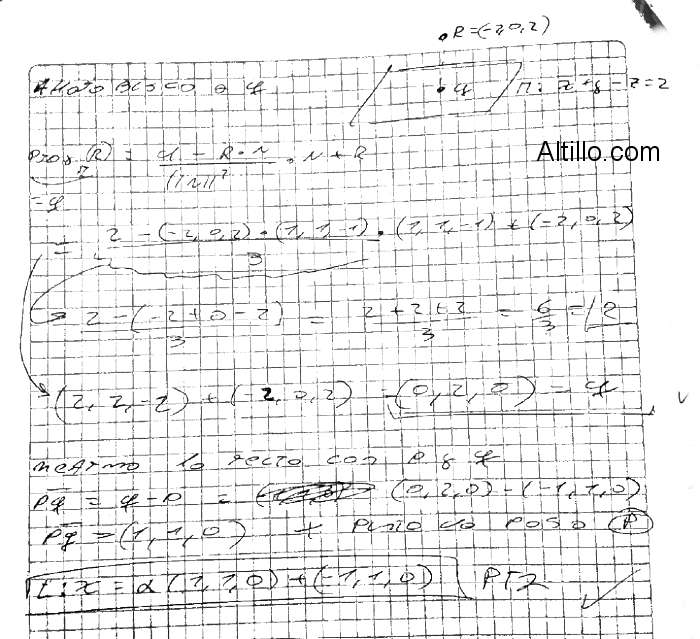 .R=(-2,0,2)
AHora BUSCO a q
.q Π: x+y-z=2
Altillo.com
Proy (R) = d - R.N / ||N||² . N + R
π
= q
= 2 - (-2,0,2) . (1,1,-1) / 3 . (1,1,-1) + (-2,0,2)
2 - (-2+0-2) / 3 = 2+2+2 / 3 = 6/3 = 2
(2,2,-2) + (-2,0,2) = (0,2,0) = q
la recta con P y q
Pq = q - P = (0,2,0) - (-1,1,0)
Pq = (1,1,0) + Punto de Paso (P)
L: x = α(1,1,0) + (-1,1,0) PTZ